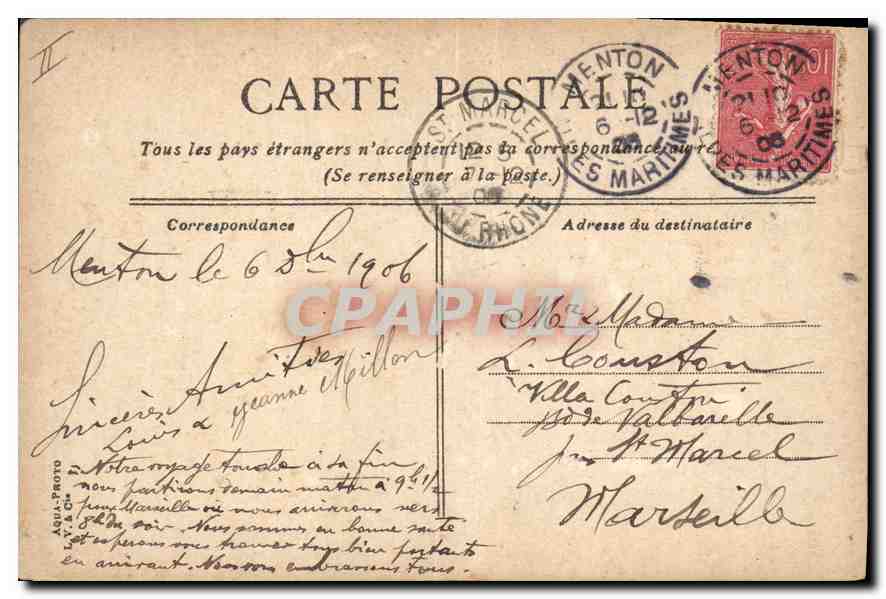 II
CARTE POSTALE
Tous les pays étrangers n'acceptent pas la correspondance au re
(Se renseigner à la poste.)
MENTON
6 -12
ALPES MARITIMES
MENTON
21 10
6 -12
06
ALPES MARITIMES
10
ST MARCEL
DU RHONE
Correspondance
Adresse du destinataire
Menton le 6 Dbre 1906
CPAPHIL
Sincères Amitiés
Louis & Jeanne Millon
Notre voyage touche à sa fin
nous partirons demain matin à 9h 1/2
pour Marseille où nous arriverons vers
8h du soir. Nous sommes en bonne santé
et espérons vous trouver tous bien portants
en arrivant. Nous vous embrassons tous.
Mr & Madame
L. Couston
Villa Couston
Bd de Valbarelle
par St Marcel
Marseille
AQUA-PHOTO
L. V. & Cie